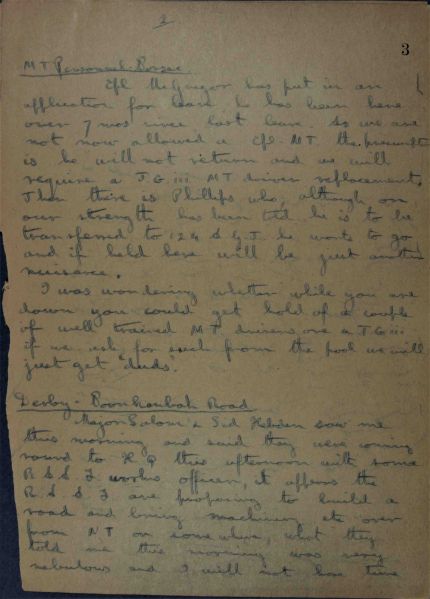 2
3
MT Personnel. Borzac
Cpl McGregor has put in an
application for leave he has been here
over 7 mos since last leave. As we are
not now allowed a Cpl. MT. the
is he will not return and we will
require a T.G iii MT driver replacement.
Then there is Phillips who, although on
our strength has been told he is to be
transferred to 124 he wants to go
and if held here will be just another
nuisance.
I was wondering whether while you are
down you could get hold of a couple
of well trained MT. drivers one a T.G iii
if we ask for such from the pool we will
just get "duds.
Derby - Road
Major & Sid Hebden saw me
this morning and said they were coming
round to H Q this afternoon with some
works officer, it appears the
are proposing to build a
road and bring machinery etc over
from NT or somewhere, what they
told me this morning was very
nebulous and I will not have time